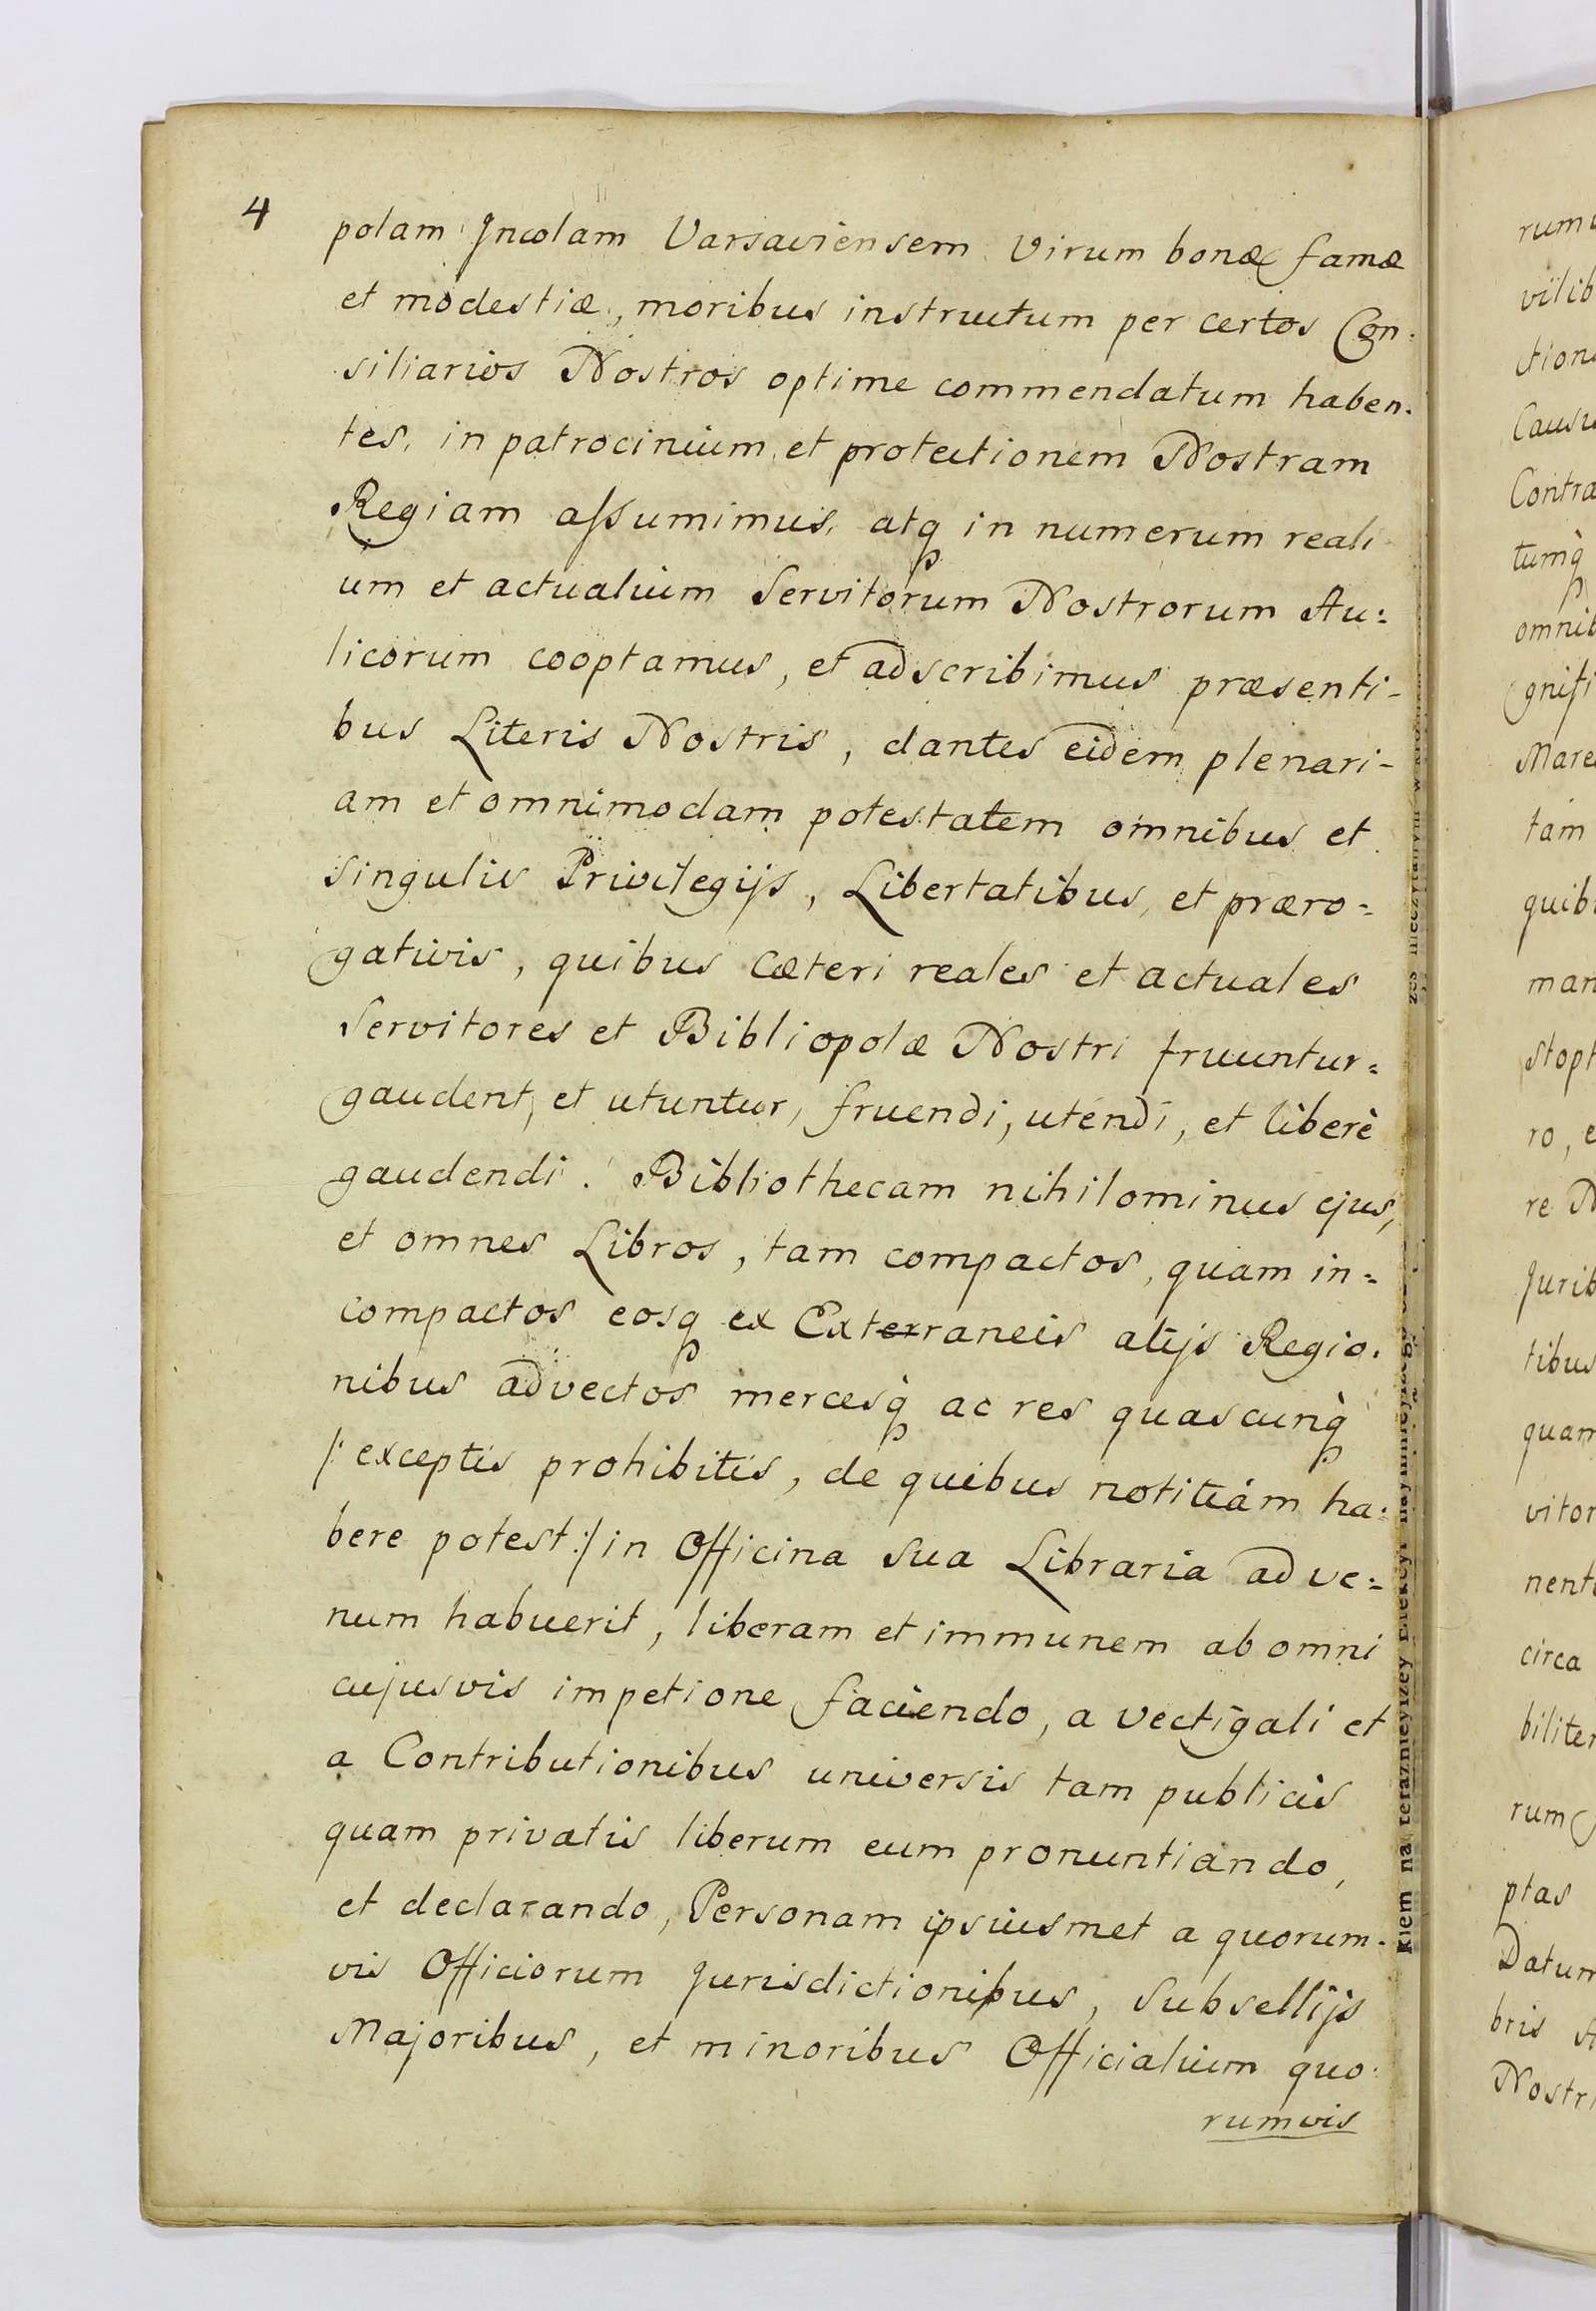 4
polam Jncolam Varsaviensem Virum bonæ famæ
et modestiæ, moribus instructum per certos Con-
siliarios Nostros optime commendatum haben-
tes, in patrocinium et protectionem Nostram
Regiam assumimus, atq in numerum reali
um et actualium Servitorum Nostrorum Au=
licorum cooptamus, et adscribimus præsenti-
bus Literis Nostris, dantes eidem plenari-
am et omnimodam potestatem omnibus et
singulis Privilegijs, Libertatibus, et præro=
gativis, quibus cæteri reales et actuales
Servitores et Bibliopolæ Nostri fruuntur=
gaudent, et utuntur, fruendi, utendi, et liberè
gaudendi. Bibliothecam nihilominus ejus,
et omnes Libros, tam compactos, quam in=
compactos eosq ex Exterraneis alijs Regio-
nibus advectos mercesq̀ ac res quascunq̀
/: exceptis prohibitis, de quibus notitiam ha-
bere potest :/ in Officina sua Libraria ad ve=
num habuerit, liberam et immunem ab omni
cujusvis impetione faciendo, a vectigali et
a Contributionibus universis tam publicis
quam privatis liberum eum pronuntiando,
et declarando, Personam ipsiusmet a quorum-
vis Officiorum Jurisdictionibus, Subsellijs
Majoribus, et minoribus Officialium quo-
rumvis
rum
vilib
ction
Causu
Contra
tumq̀
omnib
gnifi
Mare
tam
quib
man
Stopt
ro, e
re N
Jurib
tibus
quam
vitor
nent
circa
biliter
rum
ptas
Datum
bris
Nostr
kiem na teraznieyszey Elekcyi